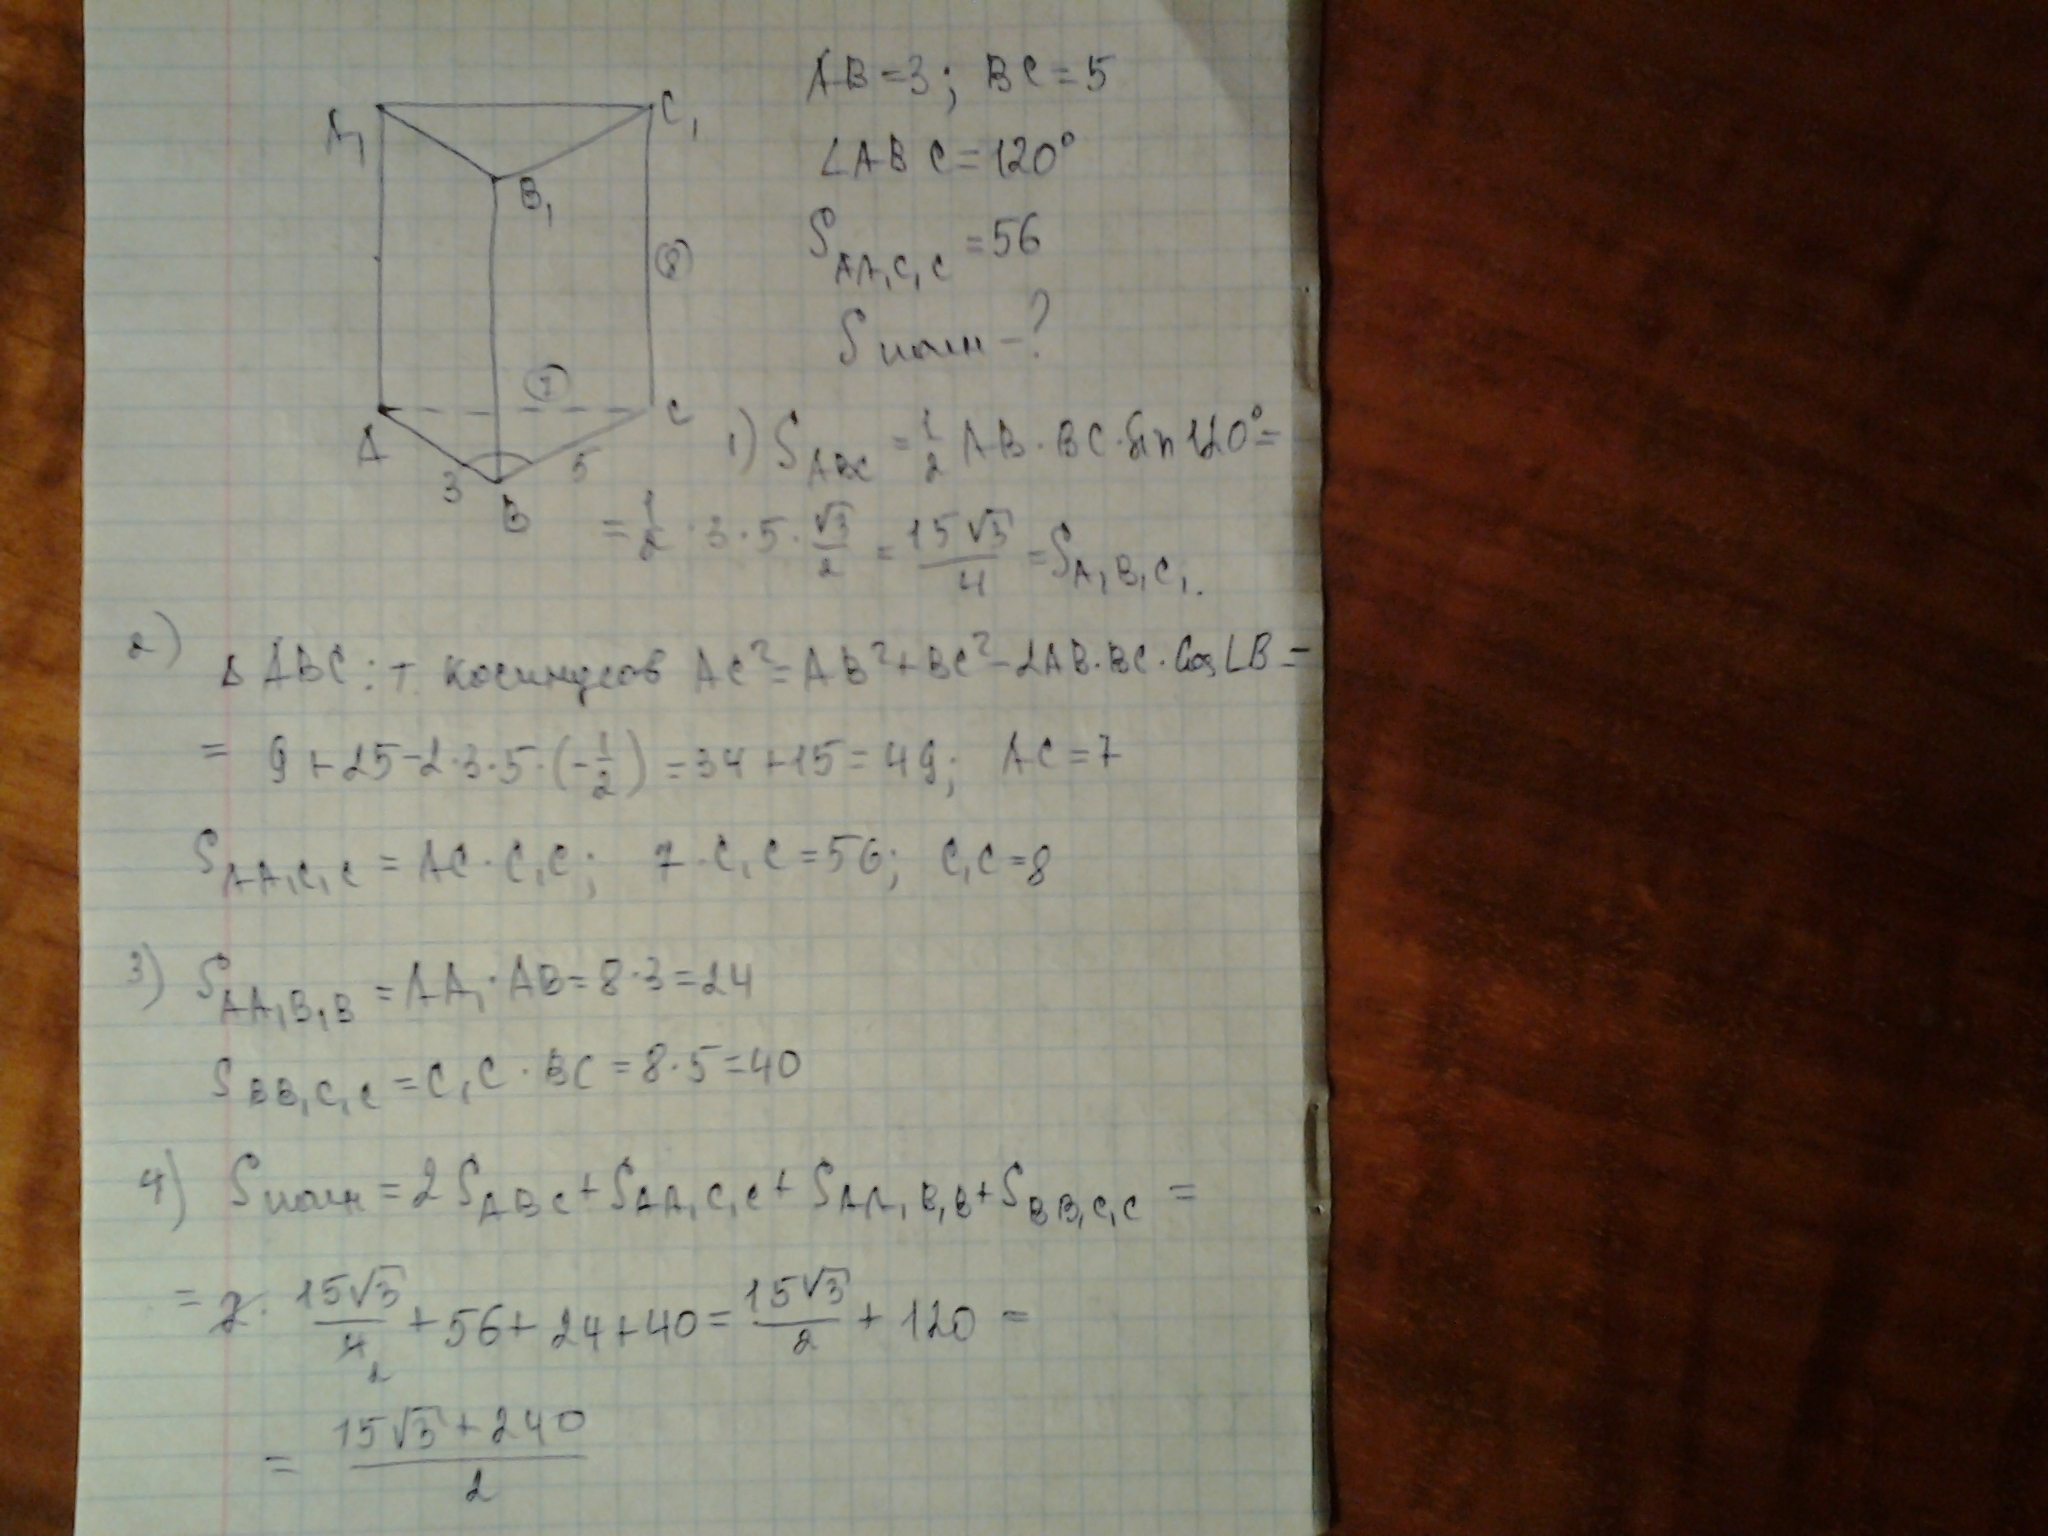 AB=3; BC=5
∠ABC=120°
S_{AA₁C₁C}=56
Sполн-?
A₁
C₁
B₁
8
7
A
C
3
5
B
1) S_{ABC}=1/2 AB·BC·Sin120°=
=1/2·3·5·√3/2=15√3/4=S_{A₁B₁C₁}.
2) Δ ABC: т. косинусов AC²=AB²+BC²-2AB·BC·Cos∠B=
= 9+25-2·3·5·(-1/2)=34+15=49; AC=7
S_{AA₁C₁C}=AC·C₁C; 7·C₁C=56; C₁C=8
3) S_{AA₁B₁B}=AA₁·AB=8·3=24
S_{BB₁C₁C}=C₁C·BC=8·5=40
4) Sполн=2S_{ABC}+S_{AA₁C₁C}+S_{AA₁B₁B}+S_{BB₁C₁C}=
=2·15√3/4 2+56+24+40=15√3/2+120=
=(15√3+240)/2